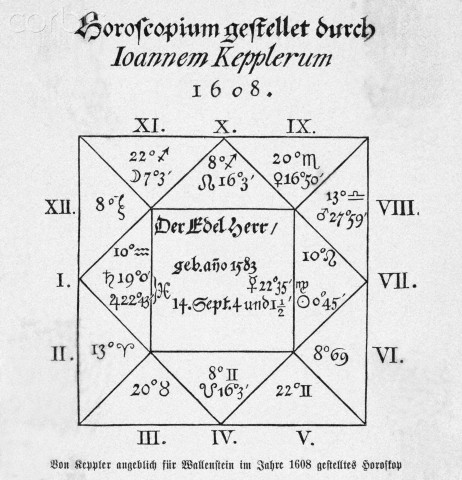 corbis
Horoscopium gestellet durch
Ioannem Kepplerum
1608.
XI.
X.
IX.
22°♐
☽7°3′
8°♐
☊16°3′
20°♏
♀16°50′
13°♎
♂27°59′
XII.
8°
VIII.
Der Edel Herr/
10°♒
♄19°0′
♃22°43′ ♓
geb. año 1583
☿22°35′ ♍
10°♌
☉0°45′
I.
VII.
14. Sept. 4 und 1½′
II.
13°♈
8°♋
VI.
20°♉
8°♊
☋16°3′
22°♊
III.
IV.
V.
Von Keppler angeblich für Wallenstein im Jahre 1608 gestelltes Horoskop